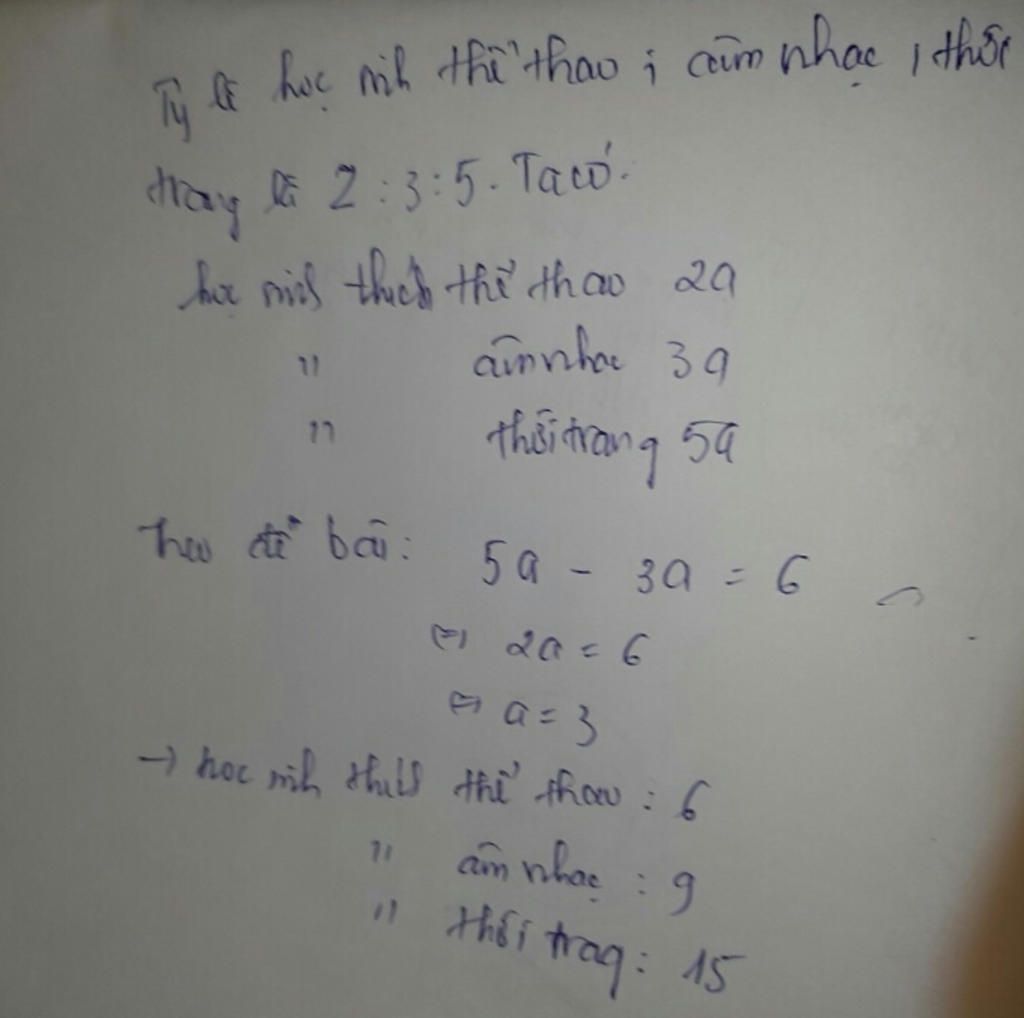 Tỷ lệ học sinh thể thao ; âm nhạc , thời
trang là 2 : 3 : 5 . Ta có.
học sinh thích thể thao 2a
" âm nhạc 3a
" thời trang 5a
Theo đề bài : 5a - 3a = 6
⇔ 2a = 6
⇔ a = 3
→ học sinh thích thể thao : 6
" âm nhạc : 9
" thời trag : 15